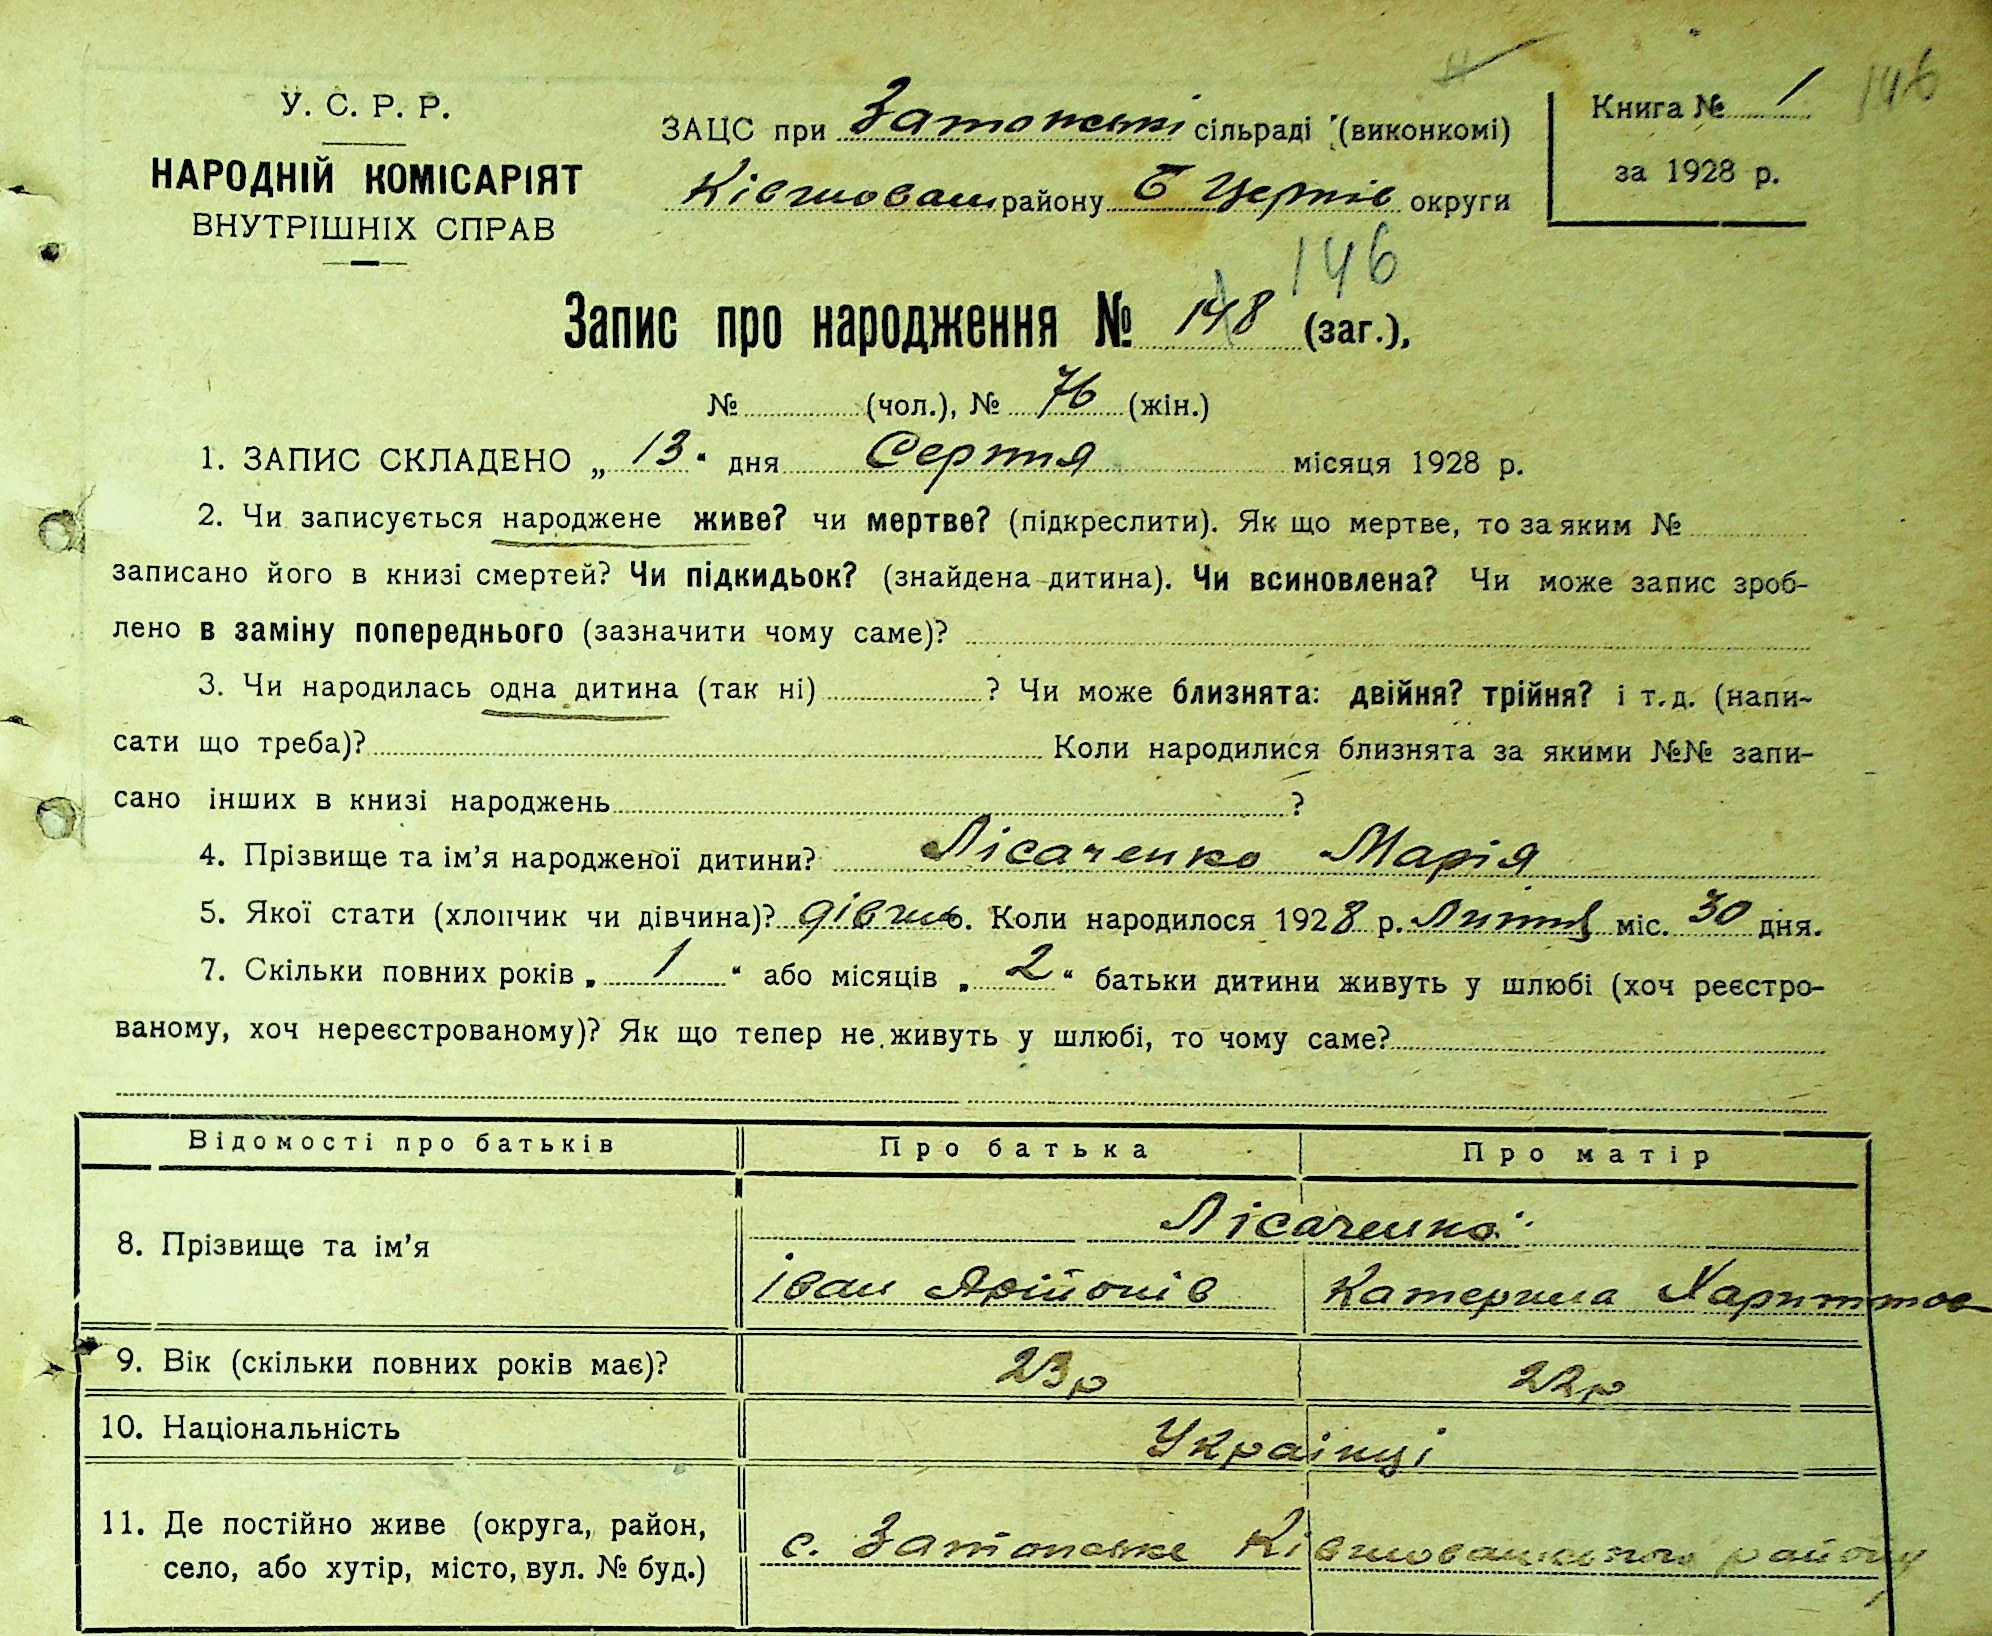 146
У. С. Р. Р.
НАРОДНІЙ КОМІСАРІЯТ
ВНУТРІШНІХ СПРАВ
ЗАЦС при Затонські сільраді (виконкомі)
Ківшоваш району Б Церків округи
Книга № 1
за 1928 р.
146
Запис про народження № 148 (заг.),
№ (чол.), № 76 (жін.)
1. ЗАПИС СКЛАДЕНО „ 13 " дня Серпня місяця 1928 р.
2. Чи записується народжене живе? чи мертве? (підкреслити). Як що мертве, то за яким №
записано його в книзі смертей? Чи підкидьок? (знайдена дитина). Чи всиновлена? Чи може запис зроб-
лено в заміну попереднього (зазначити чому саме)?
3. Чи народилась одна дитина (так ні) ? Чи може близнята: двійня? трійня? і т. д. (напи-
сати що треба)? Коли народилися близнята за якими №№ запи-
сано інших в книзі народжень ?
4. Прізвище та ім'я народженої дитини? Лісаченко Марія
5. Якої стати (хлопчик чи дівчина)? Коли народилося 1928 р. Липня міс. 30 дня.
7. Скільки повних років „ 1 " або місяців „ 2 " батьки дитини живуть у шлюбі (хоч реєстро-
ваному, хоч нереєстрованому)? Як що тепер не живуть у шлюбі, то чому саме?
Відомості про батьків Про батька Про матір
8. Прізвище та ім'я Лісаченко
Іван Катерина
9. Вік (скільки повних років має)? 23 р 22 р
10. Національність Українці
11. Де постійно живе (округа, район,
село, або хутір, місто, вул. № буд.) с. Затонське району